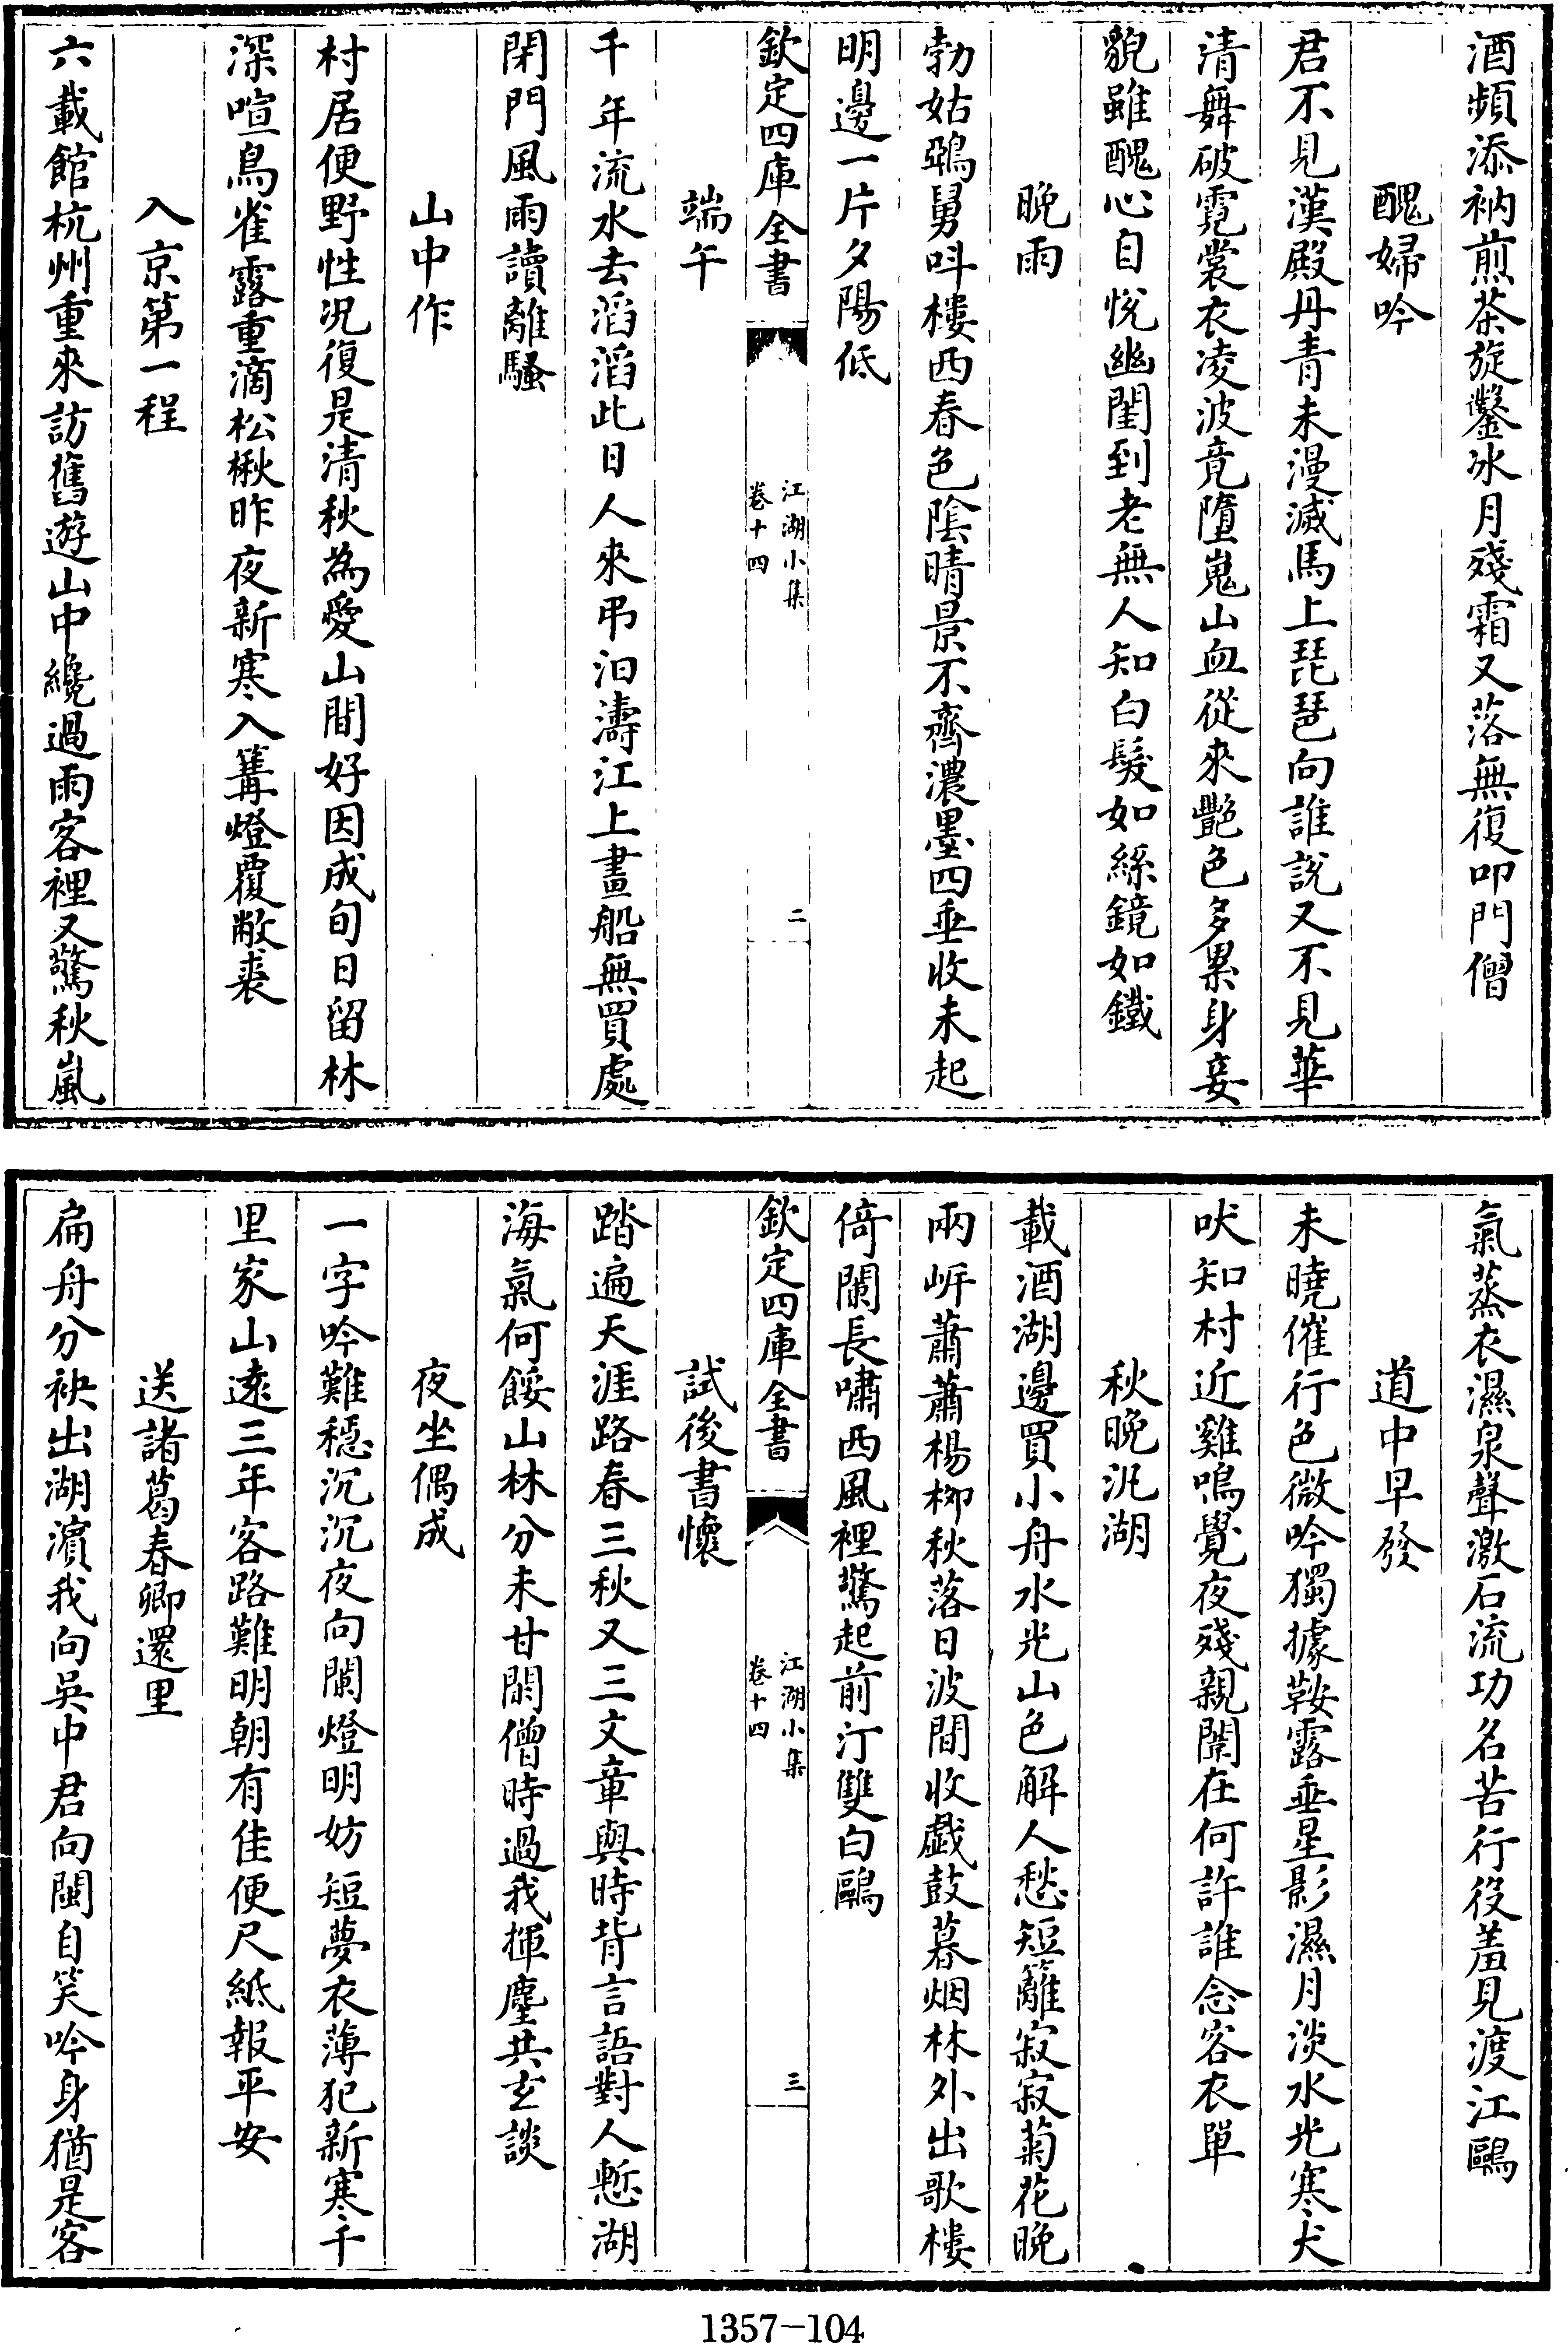 酒頻添衲煎茶旋鑿冰月殘霜又落無復叩門僧
醜婦吟
君不見漢殿丹青未漫滅馬上琵琶向誰說又不見華
清舞破霓裳衣凌波竟墮嵬山血從來艷色多累身妾
貌雖醜心自悅幽閨到老無人知白髮如絲鏡如鐵
晚雨
勃姑鵶舅呌樓西春色陰晴景不齊濃墨四垂收未起
明邊一片夕陽低
欽定四庫全書
江湖小集
卷十四
二
端午
千年流水去滔滔此日人來弔汨濤江上畫船無買處
閉門風雨讀離騷
山中作
村居便野性況復是清秋為愛山間好因成旬日留林
深喧鳥雀露重滴松楸昨夜新寒入篝燈覆敝裘
入京第一程
六載館杭州重來訪舊遊山中纔過雨客裡又驚秋嵐
氣蒸衣濕泉聲激石流功名苦行役羞見渡江鷗
道中早發
未曉催行色微吟獨據鞍露垂星影濕月淡水光寒犬
吠知村近雞鳴覺夜殘親闈在何許誰念客衣單
秋晚汎湖
載酒湖邊買小舟水光山色解人愁短籬寂寂菊花晚
兩岍蕭蕭楊栁秋落日波間收戯鼓暮烟林外出歌樓
倚闌長嘯西風裡驚起前汀雙白鷗
欽定四庫全書
江湖小集
卷十四
三
試後書懷
踏遍天涯路春三秋又三文章與時背言語對人慙湖
海氣何餒山林分未甘閑僧時過我揮麈共玄談
夜坐偶成
一字吟難穏沉沉夜向闌燈明妨短夢衣薄犯新寒千
里家山遠三年客路難明朝有佳便尺紙報平安
送諸葛春卿還里
扁舟分袂出湖濱我向吳中君向閩自笑吟身猶是客
1357-104